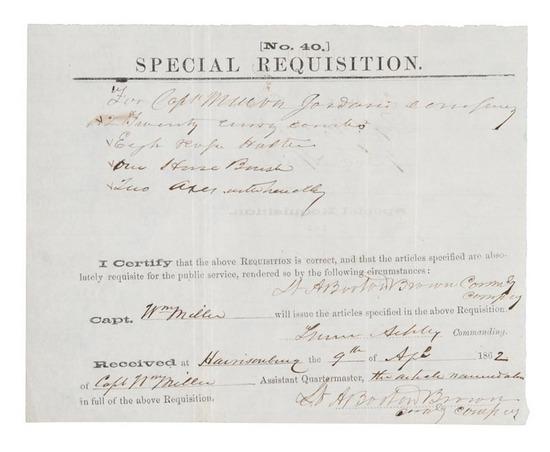 [No. 40.]
SPECIAL REQUISITION.
For Capt Jordan's company
Twenty curry combs
Eigh Rope Halters
One Horse Brush
Two Axes with handles
I Certify that the above REQUISITION is correct, and that the articles specified are abso-
lutely requisite for the public service, rendered so by the following circumstances:
Lt A Boston Brown Comdg
company
Capt. Wm Miller will issue the articles specified in the above Requisition.
Turner Ashby Commanding.
Received at Harrisonburg the 9th of Apl 1862
of Capt Wm Miller Assistant Quartermaster, the article
in full of the above Requisition.
Lt A Boston Brown
comdg company